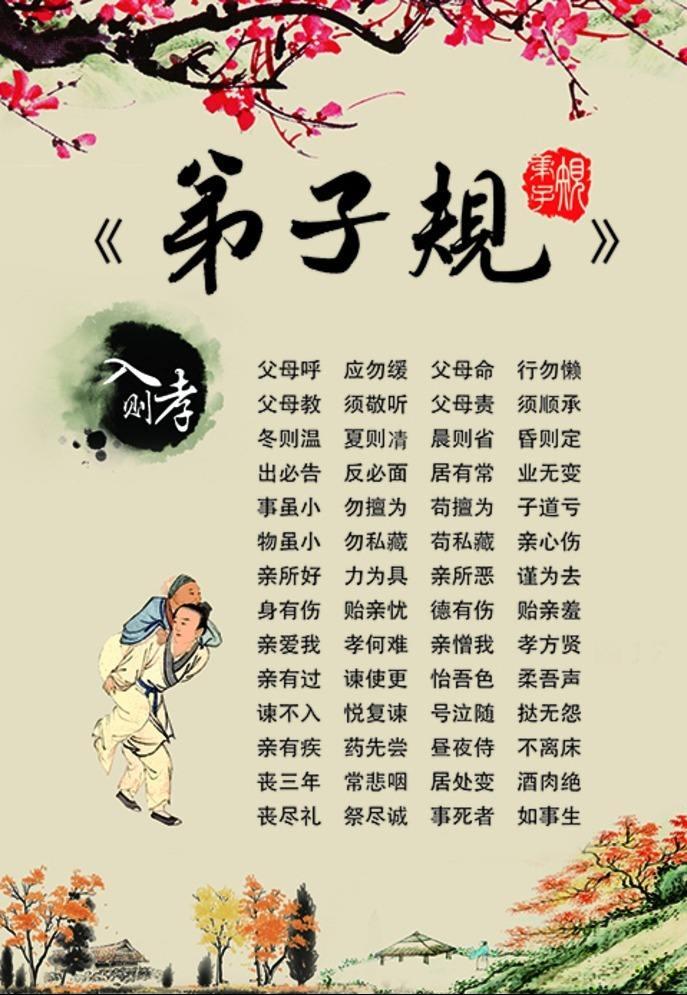 《弟子規》
弟子規
入则孝
父母呼 应勿缓 父母命 行勿懒
父母教 须敬听 父母责 须顺承
冬则温 夏则凊 晨则省 昏则定
出必告 反必面 居有常 业无变
事虽小 勿擅为 苟擅为 子道亏
物虽小 勿私藏 苟私藏 亲心伤
亲所好 力为具 亲所恶 谨为去
身有伤 贻亲忧 德有伤 贻亲羞
亲爱我 孝何难 亲憎我 孝方贤
亲有过 谏使更 怡吾色 柔吾声
谏不入 悦复谏 号泣随 挞无怨
亲有疾 药先尝 昼夜侍 不离床
丧三年 常悲咽 居处变 酒肉绝
丧尽礼 祭尽诚 事死者 如事生